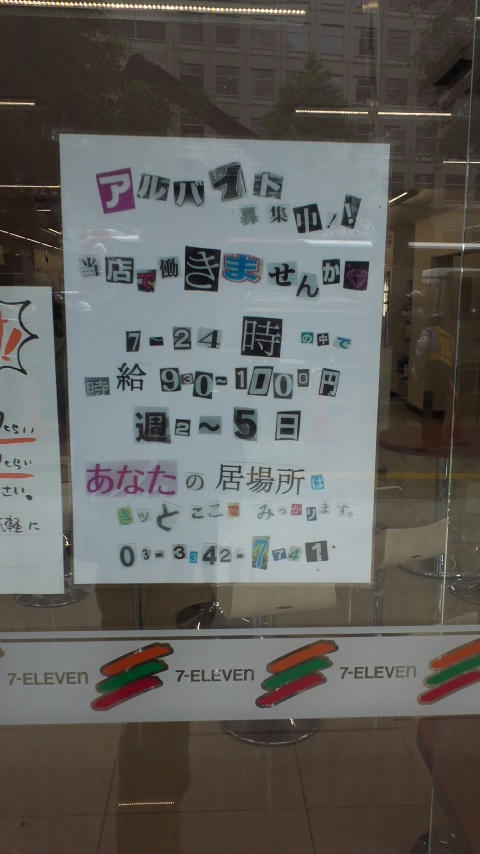 アルバイト
募集中!!
当店で働きませんか
7~24時の中で
時給930~1100円
週2~5日
あなたの居場所は
きっとここでみつかります。
03-3342-7741
くらい
くらい
さい。
気軽に
7-ELEVEn 7-ELEVEn 7-ELEVEn